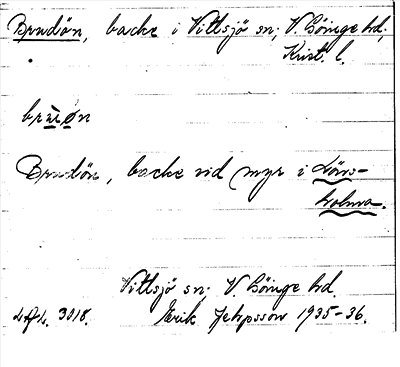 Brudön, backe i Vittsjö sn; V. Göinge hd,
Krist. l.
Brudön, backe vid myr i
Vittsjö sn; V. Göinge hd.
3018. Erik Jeppsson 1935-36.